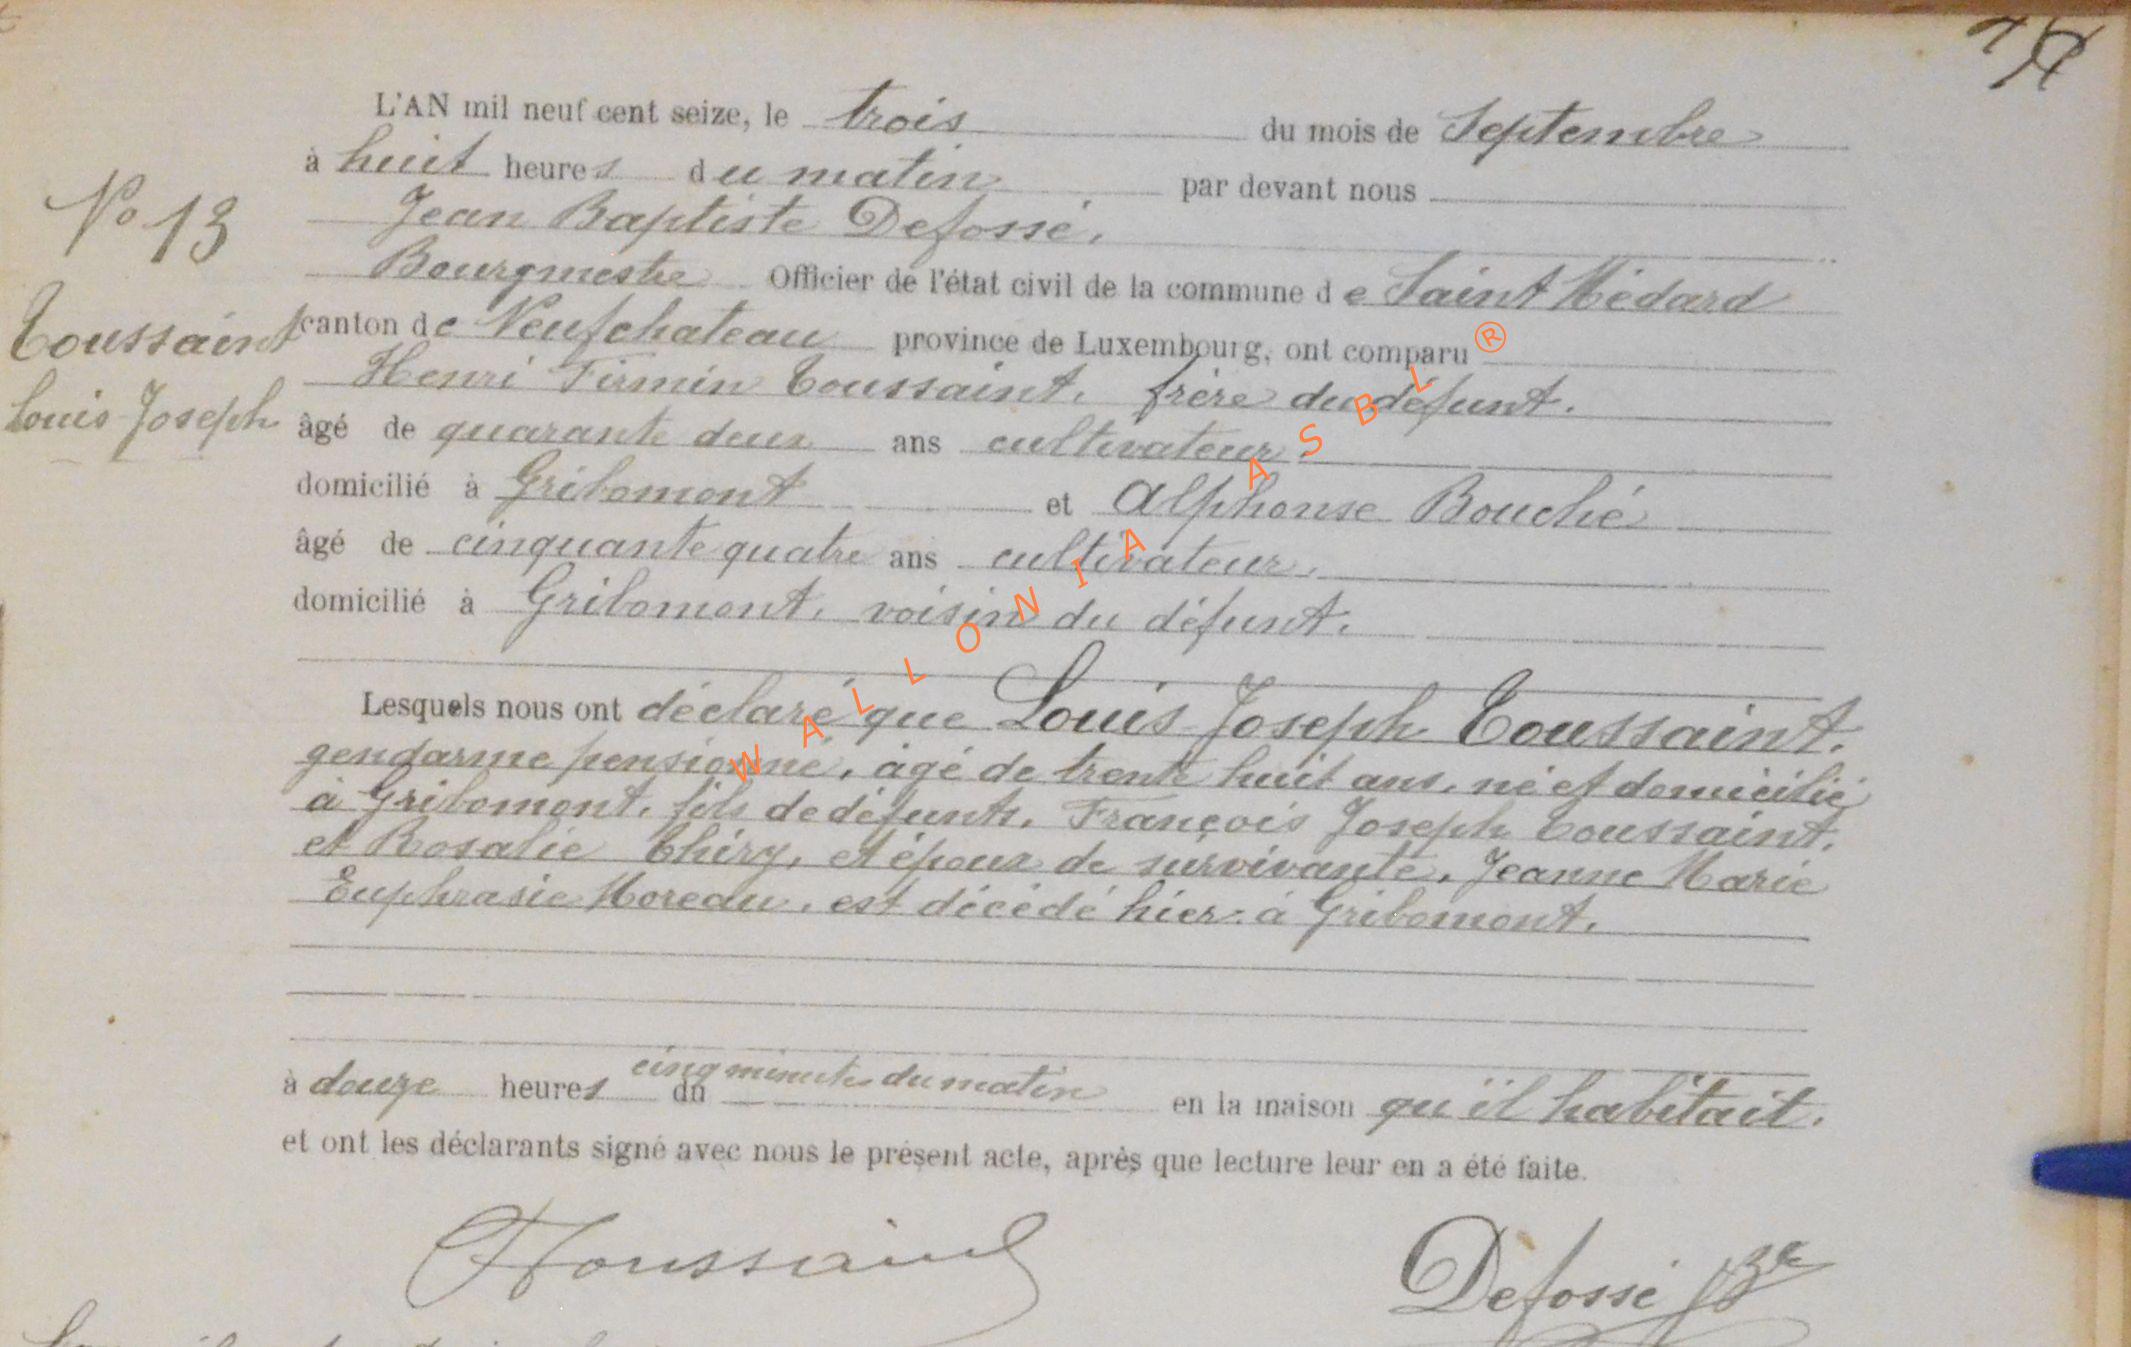 No 13
Toussaint
Louis Joseph
L'AN mil neuf cent seize, le trois du mois de Septembre
à huit heures du matin par devant nous
Jean Baptiste Defossé,
Bourgmestre Officier de l'état civil de la commune de Saint Médard
canton de Neufchateau province de Luxembourg, ont comparu
Henri Firmin Toussaint, frère du défunt.
âgé de quarante deux ans cultivateur
domicilié à Gribomont et Alphonse Bouché
âgé de cinquante quatre ans cultivateur,
domicilié à Gribomont, voisin du défunt.
Lesquels nous ont déclaré que Louis Joseph Toussaint,
gendarme pensionné, âgé de trente huit ans, né et domicilié
à Gribomont, fils de défunts, François Joseph Toussaint,
et Rosalie Thiry, et époux de survivante, Jeanne Marie
Euphrasie Moreau, est décédé hier à Gribomont,
cinq minutes du matin
à douze heures du en la maison qu'il habitait.
et ont les déclarants signé avec nous le présent acte, après que lecture leur en a été faite.
Toussaint Defossé
WALLONIA ASBL ®